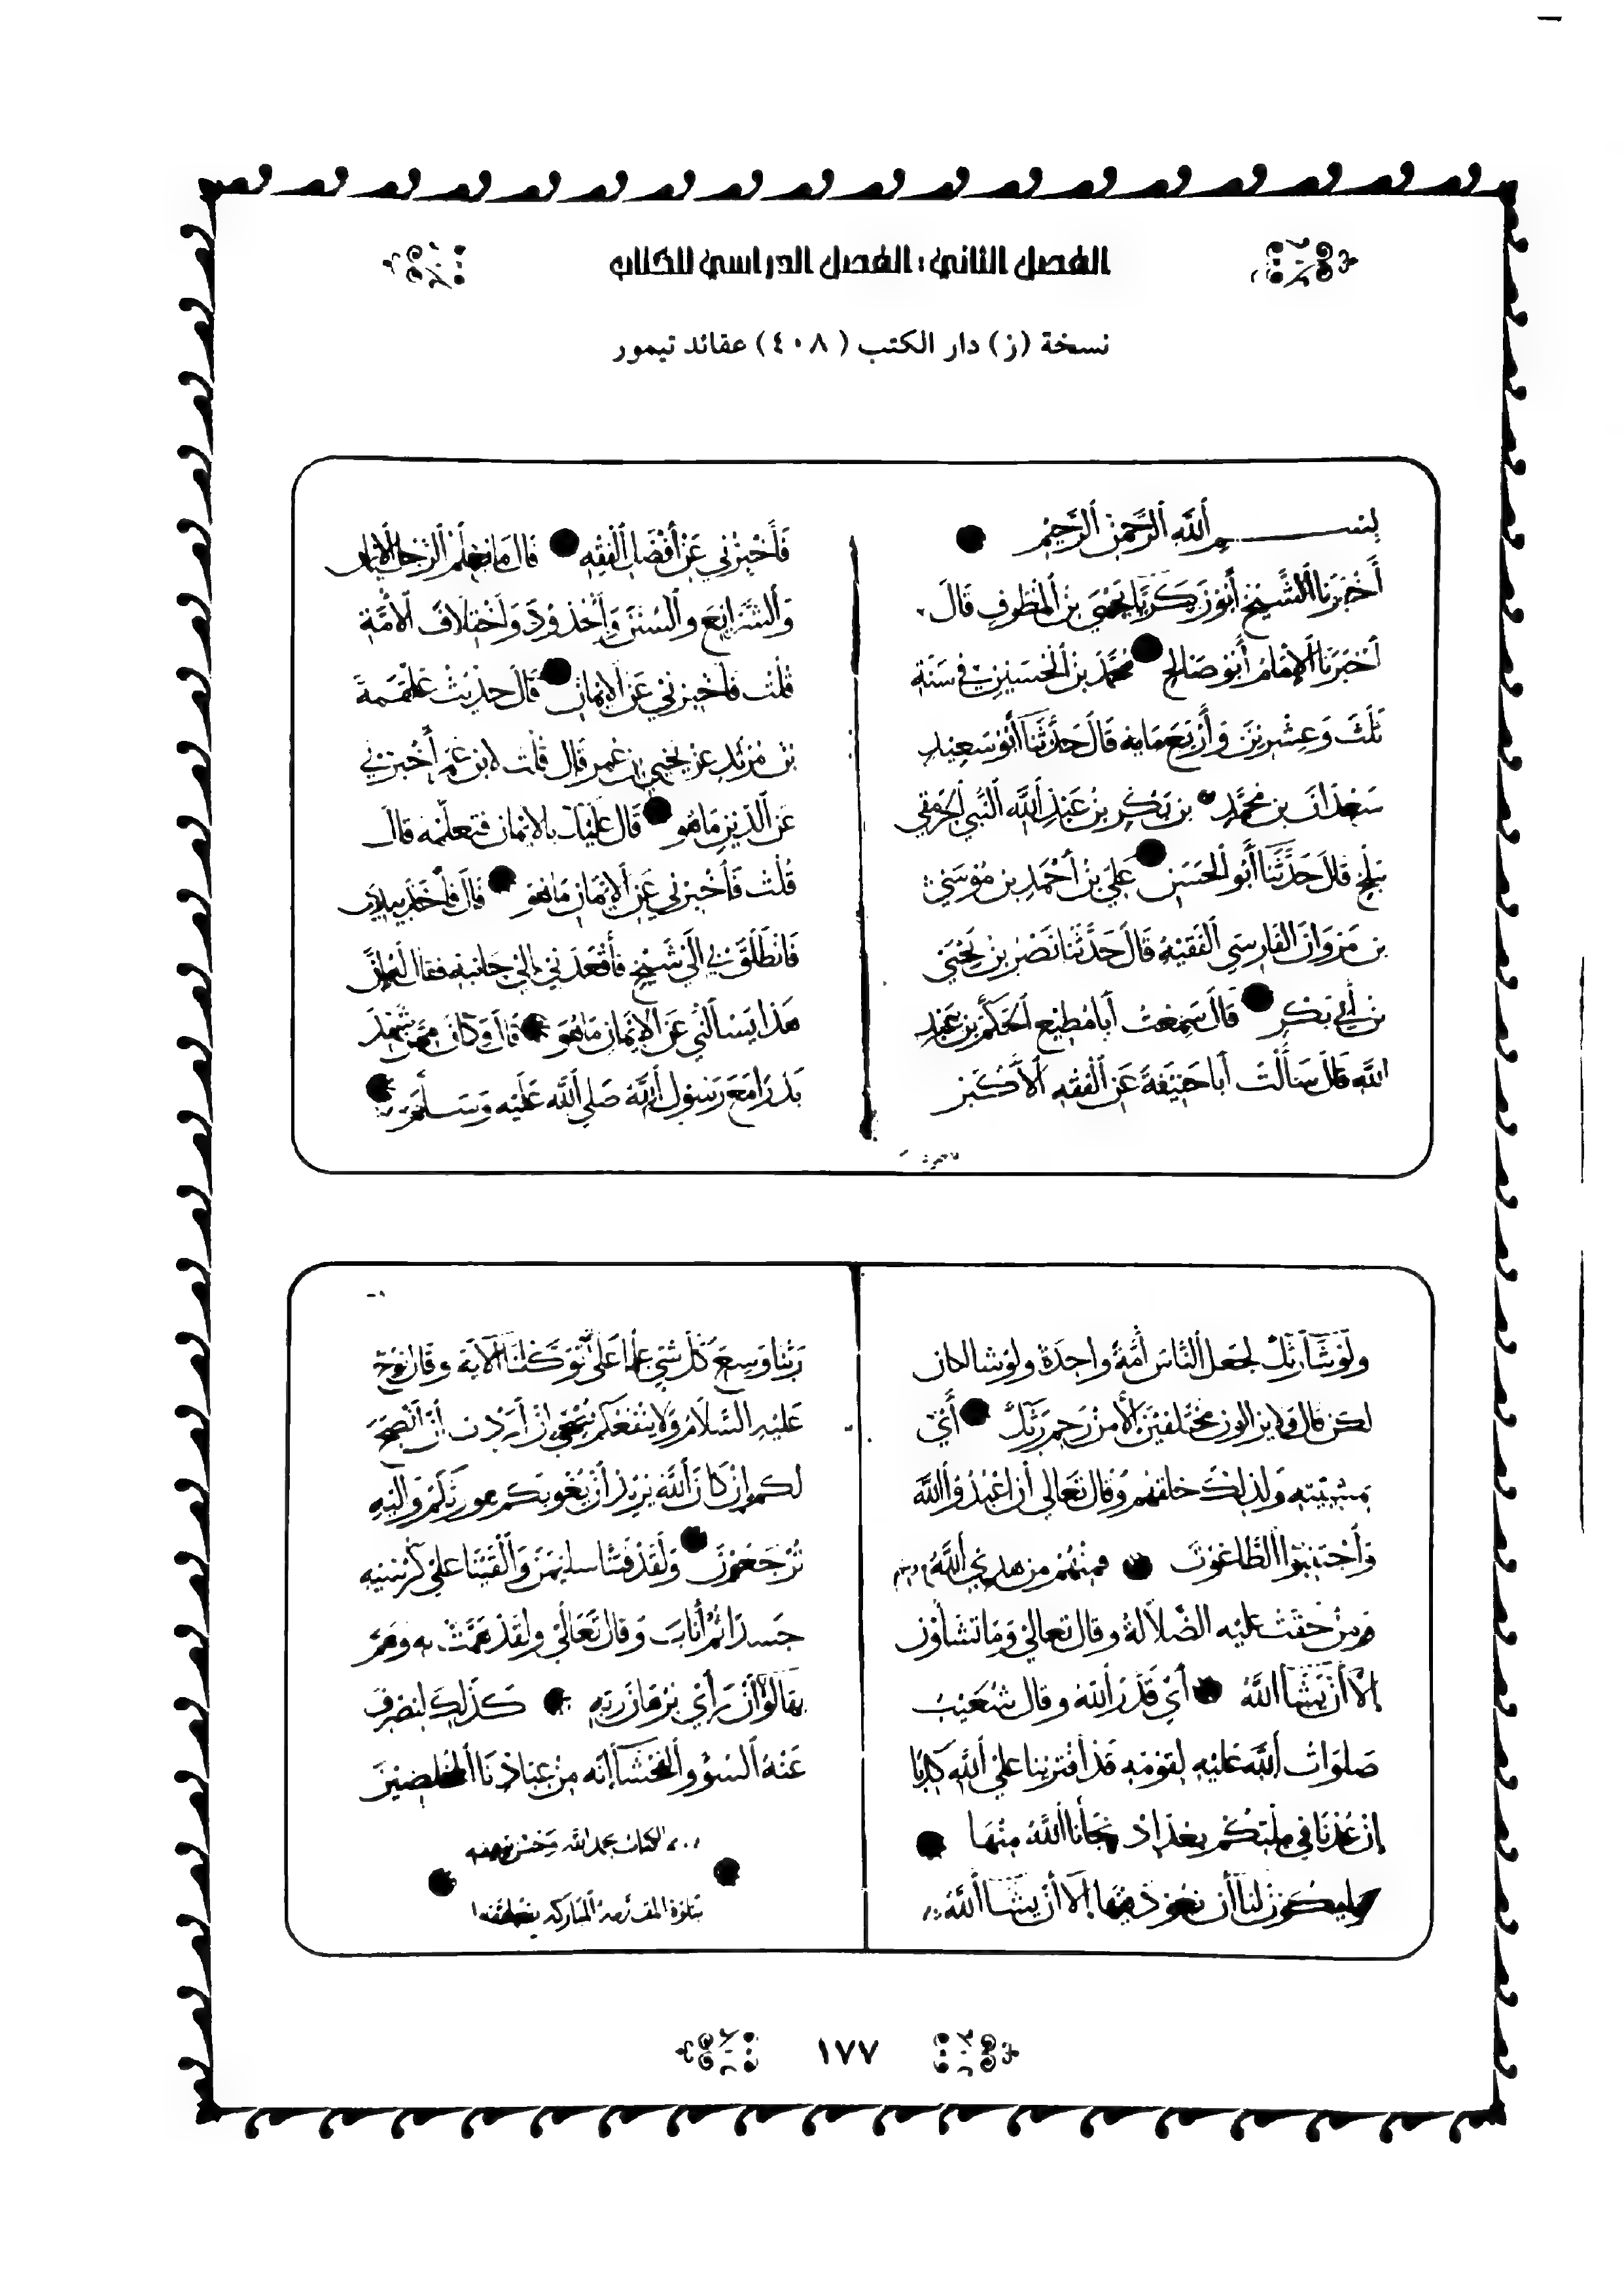 الفصل الثاني: الفصل الدراسي للكتاب
نسخة (ز) دار الكتب (٤٠٨) عقائد تيمور
بسم الله الرحمن الرحيم
أخبرنا الشيخ أبو زكريا يحيى بن المطرف قال
أخبرنا الإمام أبو صالح محمد بن الحسين في سنة
ثلث وعشرين وأربعمايه قال حدثنا أبو سعيد
سعدان بن محمد بن بكر بن عبد الله
بلخ قال حدثنا أبو الحسن علي بن أحمد بن موسى
بن مروان الفارسي الفقيه قال حدثنا نصر بن يحيى
بن أبي بكر قال سمعت أبا مطيع الحكم بن عبد
الله قال سألت أبا حنيفة عن الفقه الأكبر
فأخبرني عن أفضل الفقه قال الرجل الايمان
والشرايع والسنن واختلاف الأمة
قلت فأخبرني عن الإيمان قال حديث علقمة
بن مرثد عن يحيى بن يعمر قال قلت لابن عمر أخبرني
عن الدين ما هو قال عليك بالايمان فتعلمه قال
قلت فأخبرني عن الإيمان ما هو قال فأخذ بيدي
فانطلق بي الى شيخ فأقعدني إلى جانبه فقال له إن
هذا يسالني عن الإيمان ما هو قال وكان ممن شهد
بدرا مع رسول الله صلى الله عليه وسلم
ولو شآ ربك لجعل الناس أمة واحدة ولو شا لكان
لكن قال ولا يزالون مختلفين الا من رحم ربك أي
بمشيته ولذلك خلقهم وقال تعالى أن اعبدوا الله
واجتنبوا الطاغوت فمنهم من هدى الله
من حقت عليه الضلالة وقال تعالى وما تشاؤن
إلا أن يشآ الله أي قدر الله وقال شعيب
صلوات الله عليه لقومه قد افترينا على الله كذبا
إن عدنا في ملتكم بعد إذ نجانا الله منها
وما يكون لنا أن نعود فيها إلا أن يشآ الله
ربنا وسع كل شي علما على الله توكلنا الآية وقال نوح
عليه السلام ولا ينفعكم نصحي ان أردت أن أنصح
لكم إن كان الله يريد أن يغويكم هو ربكم واليه
ترجعون ولقد فتنا سليمن وألقينا على كرسيه
جسدا ثم أناب وقال تعالى ولقد همت به وهم
بها لولا أن رأى برهان ربه كذلك لنصرف
عنه السؤ والفحشآ إنه من عبادنا المخلصين
الكتاب بحمد الله وحسن توفيقه
١٧٧